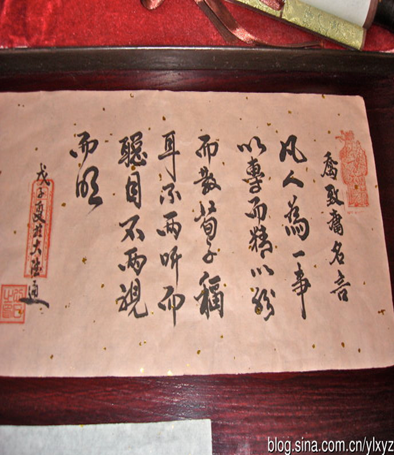 喬致庸名言
凡人為一事
以專而精以紛
而散荀子稱
耳不两听而
聰目不两視
而明
戊子夏於大德通
blog.sina.com.cn/ylxyz